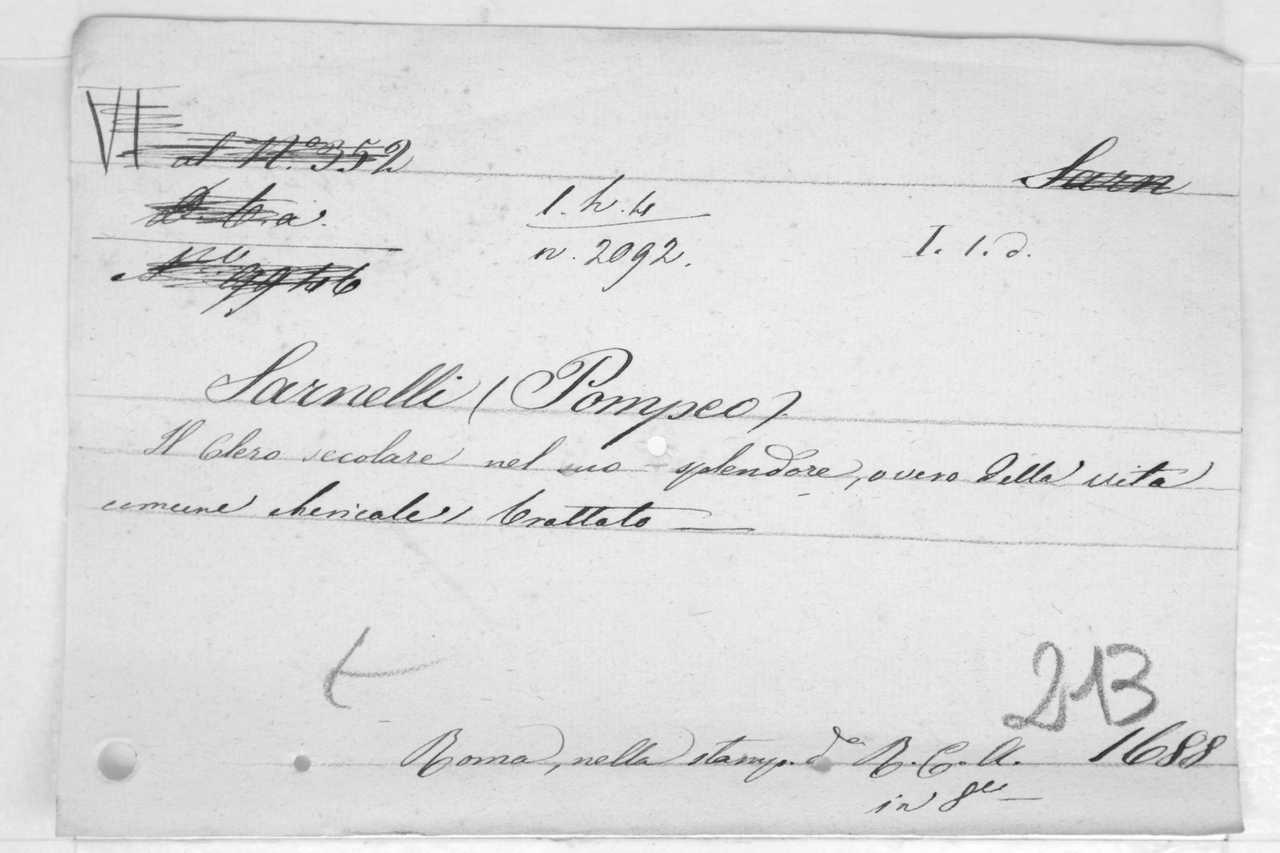 VI
al N.º 352
Sarn
1. h. 4
n. 2092.
I. 1. d.
9946
Sarnelli (Pompeo).
Il Clero secolare nel suo splendore, overo della vita
comune chericale, trattato
213
Roma, nella stamp. de R. C. A. 1688
in 8º